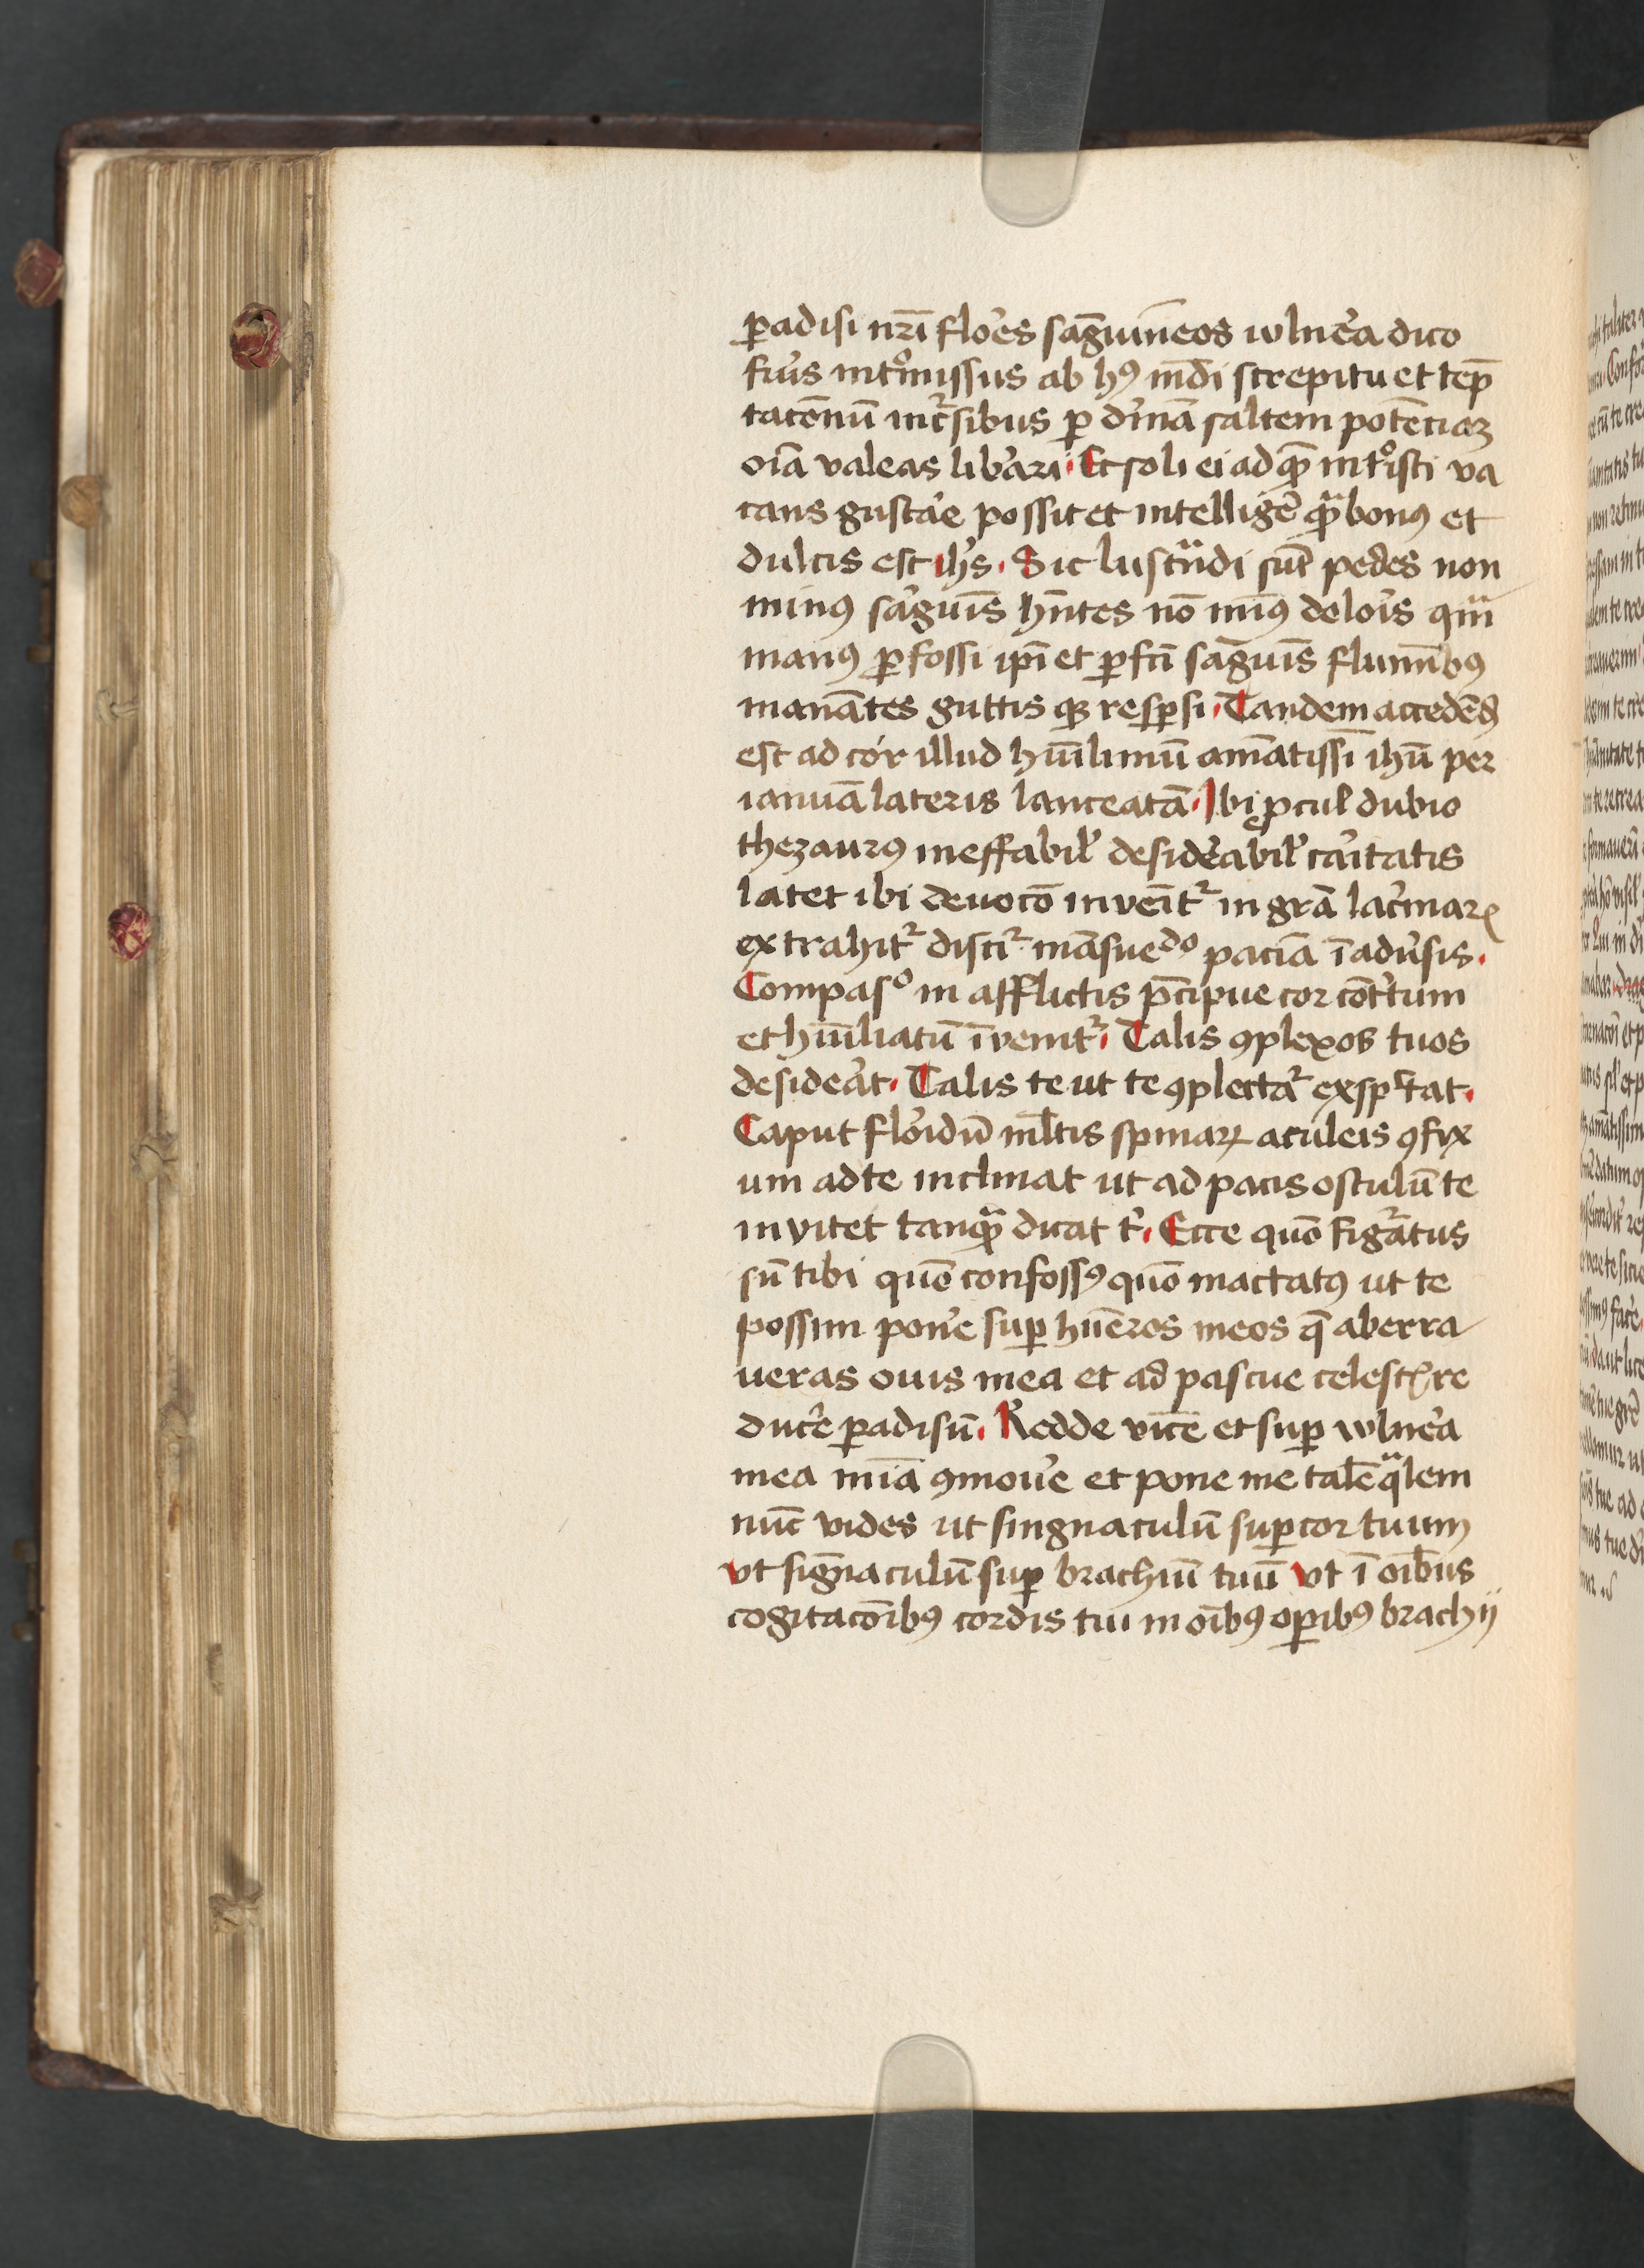 ꝑadisi nr̄i flo͛es sāguineos wlne͛a dico
fiu͛s int͛omissus ab hꝰ mūdi strepitu et tep̄
tacōnū incͬsibus ꝑ di͛nā saltem potēciaꝫ
oīa valeas lib͛ari. Et soli ei ad quē int͛oisti va
cans gusta͛e possit et intellige͛ qᵃbonꝰ et
dulcis est ih͛s. Sic lustͣndi sūt pedes non
minꝰ sa͛guīs hn̄tes nō mīꝰ delo͛is qᵃm
manꝰ ꝑfossi ip̄i et ꝑfcī sāguīs flumībꝰ
manātes guttis qꝫ resꝑsi. Tandem accedēdꝰ
est ad cor illud hūilimū amātissī ihū per
ianuā lateris lanceatā. Ibi ꝓcul dubio
thezaurꝰ ineffabil͛ desid͛eabil͛ ca͛itatis
latet ibi deuocō inveītͬ in grā lac͛imaꝝ
extrahitͬ discitͬ māsuedᵒ paciā ī adu͛sis.
Compasᵒ in afflictis p̄cipue cor cōt͛tum
et hūiliatū īvenitͬ. Talis ꝯplexos tuos
deside͛at. Talis te ut te ꝯplectaͬ expͨtat.
Caput flo͛idū ml̄tis spinaꝝ aculeis ꝯfix
um ad te inclinat ut ad pacis osculū te
invitet tanqᵃ dicat t͛. Ecce quō figͬatus
sū tibi quō confossꝰ quō mactatꝰ ut te
possim pone͛ suꝑ hūeros meos q̄ aberra
ueras ouis mea et ad pascue celestꝭ re
duce͛ ꝑadisū. Redde vicē et suꝑ wlne͛a
mea mīa ꝯmoue͛ et pone me talē qᵃlem
nūc vides ut singnaculū suꝑ cor tuum
vt signaculū suꝑ brachiū tuū vt ī oībus
cogitacōibꝰ cordis tui in oībꝰ oꝑibꝰ brachij